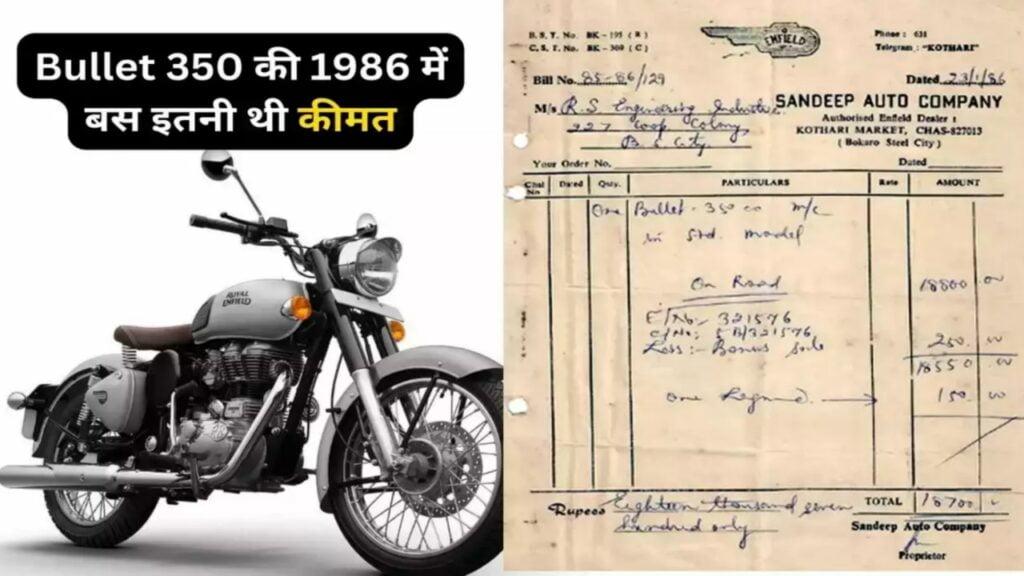 Bullet 350 की 1986 में
बस इतनी थी कीमत
ROYAL
ENFIELD
B. S. T. No. BK - 195 ( R )
C. S. T. No. BK - 300 ( C )
ENFIELD
Phone : 631
Telegram : "KOTHARI"
Bill No. 85-86/129
Dated 23/1/86
M/s R.S Engineering Industries
927 Coop Colony,
B. S. City.
SANDEEP AUTO COMPANY
Authorised Enfield Dealer :
KOTHARI MARKET, CHAS-827013
( Bokaro Steel City )
Your Order No.
Dated
Chal No
Dated
Qnty.
PARTICULARS
Rate
AMOUNT
One Bullet - 350 cc m/c
in Std. model
On Road 18800 .00
E/No:- 321576
C/No: 5B/321576
Less:- Bonus 250. 00
18550 .00
One 150. 00
Rupees Eighteen thousand seven
hundred only
TOTAL 18700
Sandeep Auto Company
Proprietor